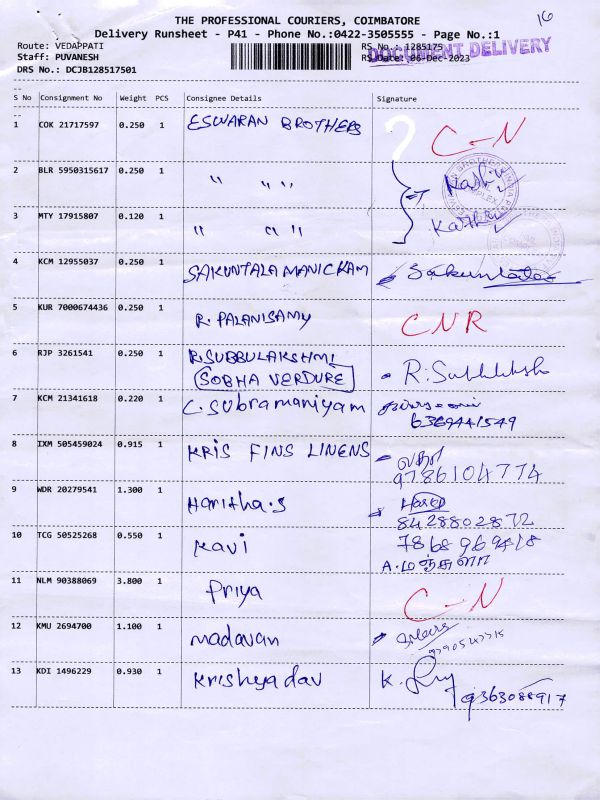 16
THE PROFESSIONAL COURIERS, COIMBATORE
Delivery Runsheet - P41 - Phone No.:0422-3505555 - Page No.:1
Route: VEDAPPATI
RS No.: 1285175
DOCUMENT DELIVERY
Staff: PUVANESH
RS Date: 06-Dec-2023
DRS No.: DCJB128517501
S No Consignment No Weight PCS Consignee Details Signature
1 COK 21717597 0.250 1 ESWARAN BROTHERS C-N
2 BLR 5950315617 0.250 1 " " "
3 MTY 17915807 0.120 1 " " "
4 KCM 12955037 0.250 1 SAKUNTALA MANICKAM Sakuntala
5 KUR 7000674436 0.250 1 R. PALANISAMY CNR
6 RJP 3261541 0.250 1 R.SUBBULAKSHMI
SOBHA VERDURE
7 KCM 21341618 0.220 1 C. Subramaniyam
6369441549
8 IXM 505459024 0.915 1 KRIS FINS LINENS
9786104774
9 WDR 20279541 1.300 1 Haritha.S
8428802872
10 TCG 50525268 0.550 1 Kavi 7868969418
A.மஞ்சுளா
11 NLM 90388069 3.800 1 Priya C-N
12 KMU 2694700 1.100 1 Madavan
13 KDI 1496229 0.930 1 Krishyadav
9363088917